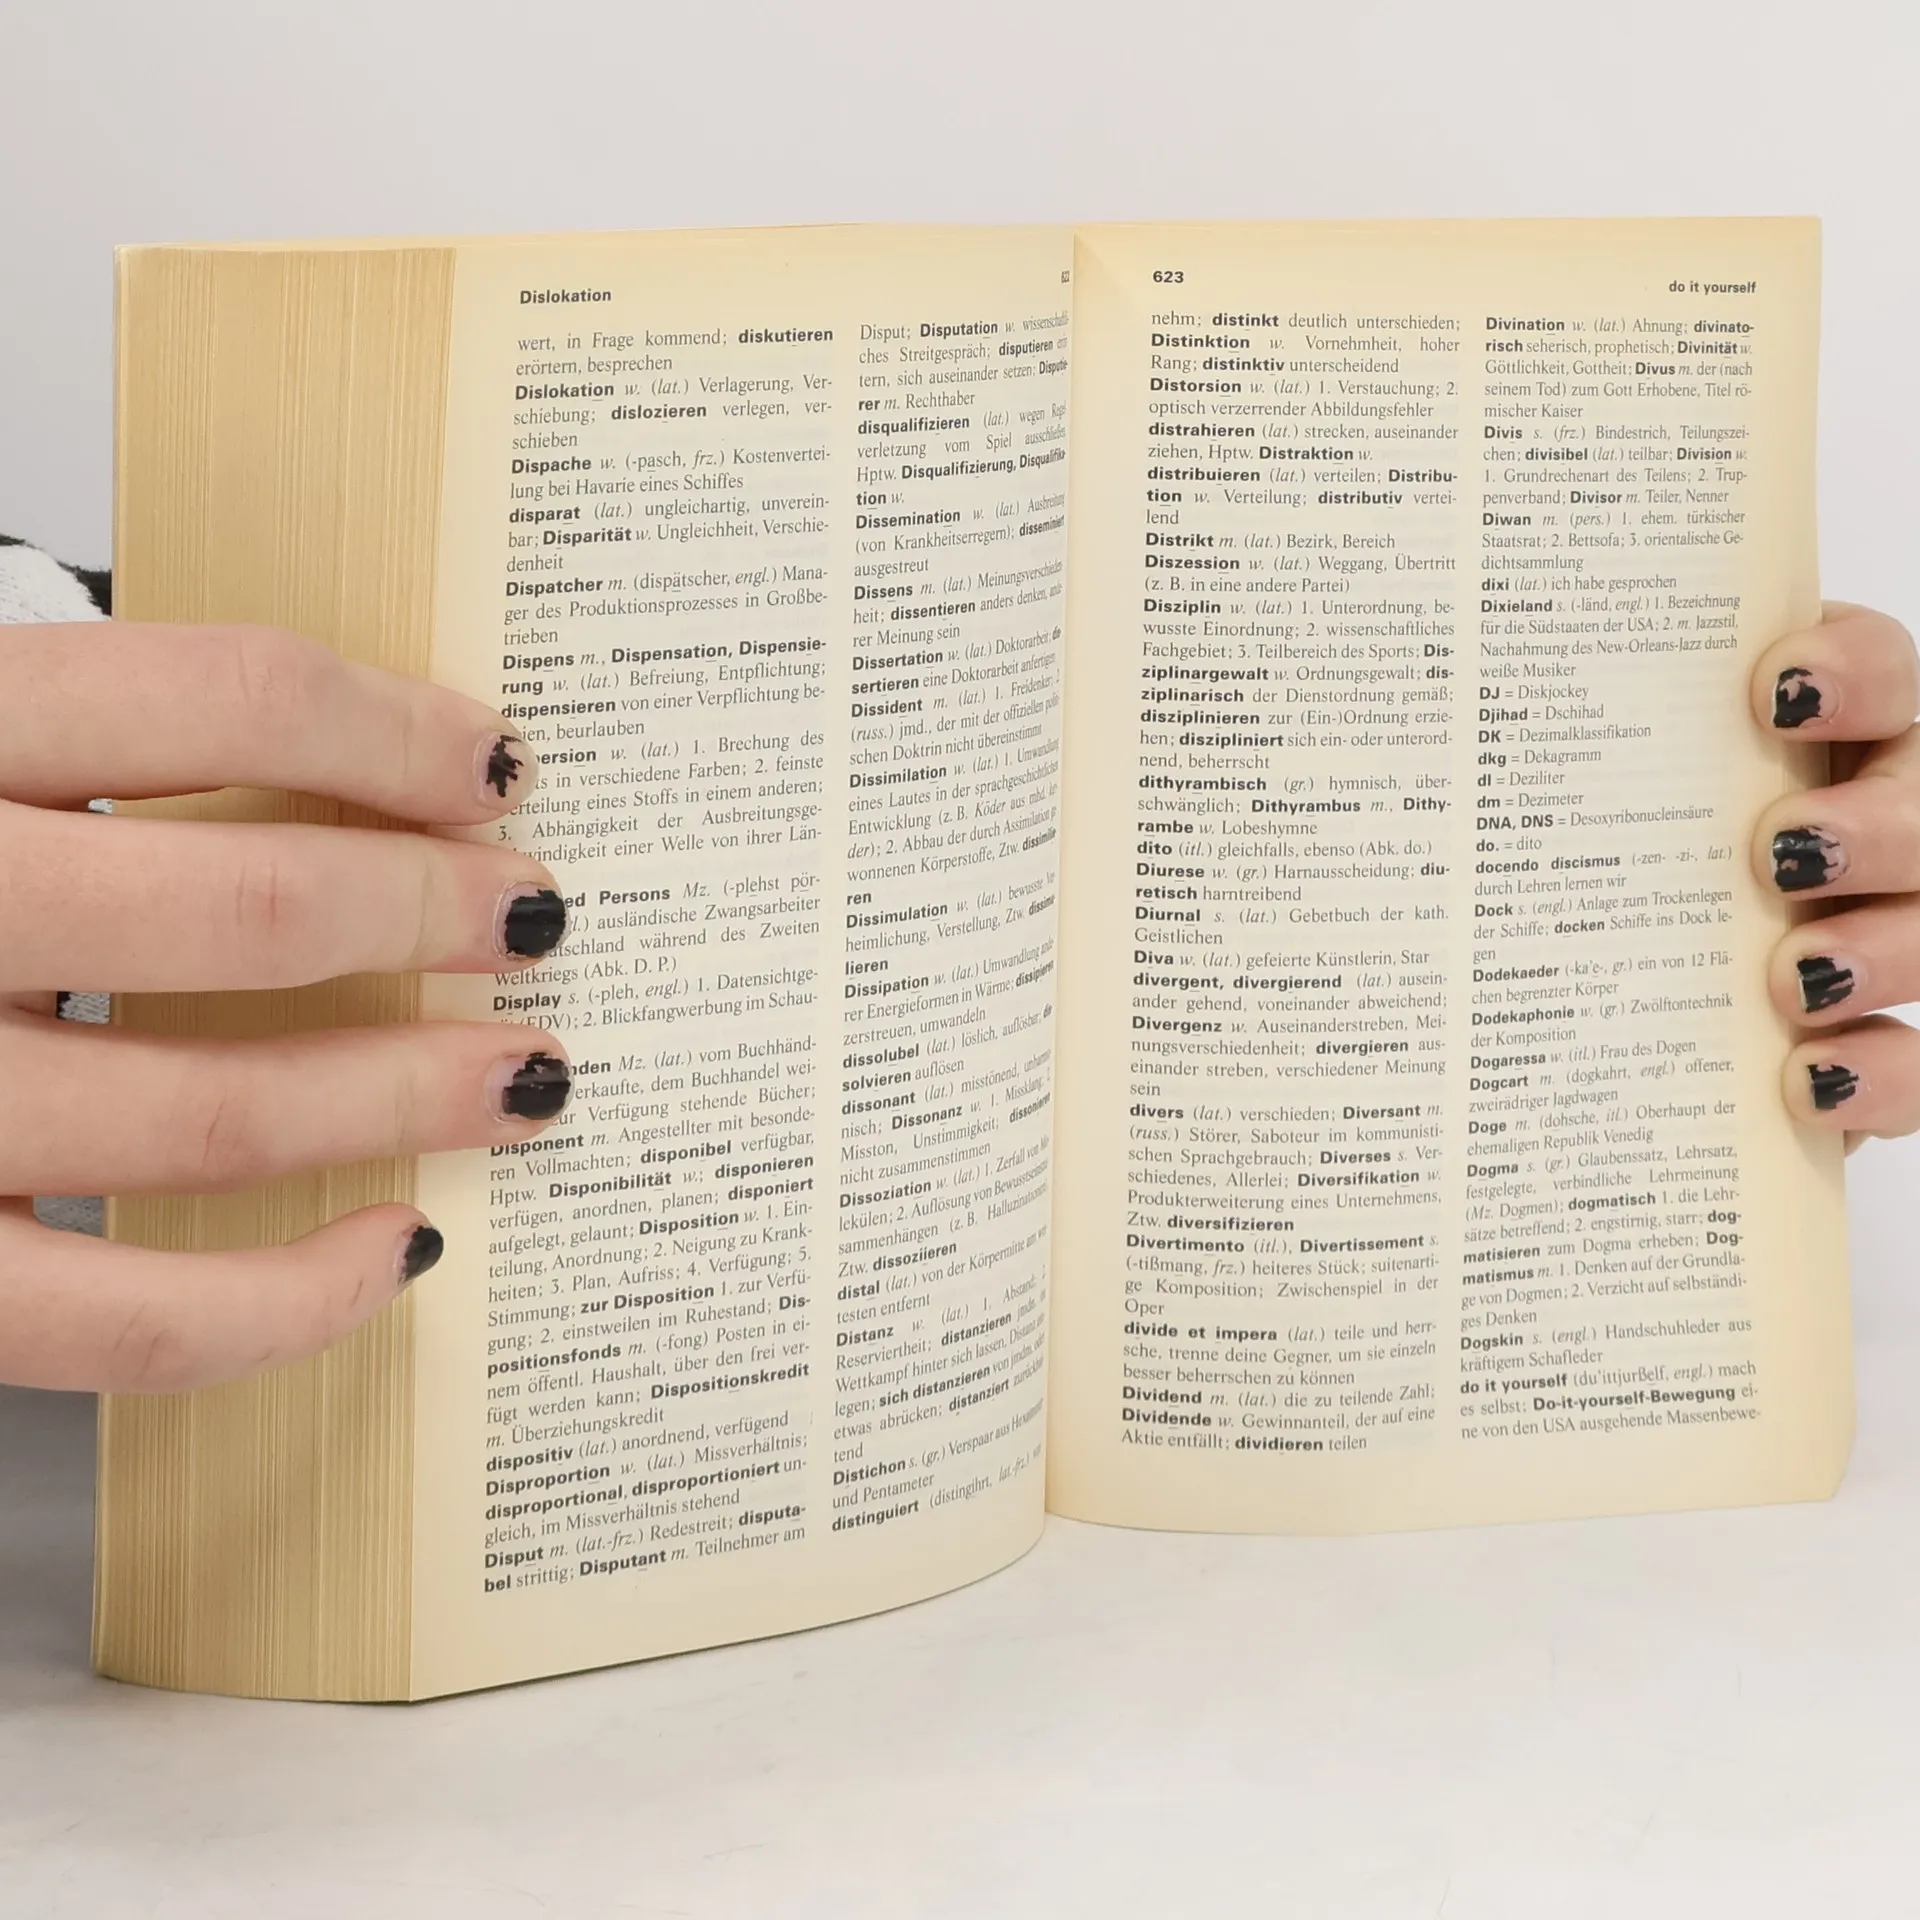 Dislokation
wert, in Frage kommend; diskutieren
erörtern, besprechen
Dislokation w. (lat.) Verlagerung, Ver-
schiebung; dislozieren verlegen, ver-
schieben
Dispache w. (-pasch, frz.) Kostenvertei-
lung bei Havarie eines Schiffes
disparat (lat.) ungleichartig, unverein-
bar; Disparität w. Ungleichheit, Verschie-
denheit
Dispatcher m. (dispätscher, engl.) Mana-
ger des Produktionsprozesses in Großbe-
trieben
Dispens m., Dispensation, Dispensie-
rung w. (lat.) Befreiung, Entpflichtung;
dispensieren von einer Verpflichtung be-
ien, beurlauben
ersion w. (lat.) 1. Brechung des
ts in verschiedene Farben; 2. feinste
erteilung eines Stoffs in einem anderen;
3. Abhängigkeit der Ausbreitungsge-
windigkeit einer Welle von ihrer Län-
ed Persons Mz. (-plehst pör-
l.) ausländische Zwangsarbeiter
tschland während des Zweiten
Weltkriegs (Abk. D. P.)
Display s. (-pleh, engl.) 1. Datensichtge-
(EDV); 2. Blickfangwerbung im Schau-
nden Mz. (lat.) vom Buchhänd-
erkaufte, dem Buchhandel wei-
ur Verfügung stehende Bücher;
Disponent m. Angestellter mit besonde-
ren Vollmachten; disponibel verfügbar,
Hptw. Disponibilität w.; disponieren
verfügen, anordnen, planen; disponiert
aufgelegt, gelaunt; Disposition w. 1. Ein-
teilung, Anordnung; 2. Neigung zu Krank-
heiten; 3. Plan, Aufriss; 4. Verfügung; 5.
Stimmung; zur Disposition 1. zur Verfü-
gung; 2. einstweilen im Ruhestand; Dis-
positionsfonds m. (-fong) Posten in ei-
nem öffentl. Haushalt, über den frei ver-
fügt werden kann; Dispositionskredit
m. Überziehungskredit
dispositiv (lat.) anordnend, verfügend
Disproportion w. (lat.) Missverhältnis;
disproportional, disproportioniert un-
gleich, im Missverhältnis stehend
Disput m. (lat.-frz.) Redestreit; disputa-
bel strittig; Disputant m. Teilnehmer am
622
Disput; Disputation w. wissenschaftli-
ches Streitgespräch; disputieren erör-
tern, sich auseinander setzen; Dispute-
rer m. Rechthaber
disqualifizieren (lat.) wegen Regel
verletzung vom Spiel ausschließen
Hptw. Disqualifizierung, Disqualifika-
tion w.
Dissemination w. (lat.) Ausbreitung
(von Krankheitserregern); disseminiert
ausgestreut
Dissens m. (lat.) Meinungsverschieden
heit; dissentieren anders denken, ande-
rer Meinung sein
Dissertation w. (lat.) Doktorarbeit; dis
sertieren eine Doktorarbeit anfertigen
Dissident m. (lat.) 1. Freidenker; 2.
(russ.) jmd., der mit der offiziellen politi
schen Doktrin nicht übereinstimmt
Dissimilation w. (lat.) 1. Umwandlung
eines Lautes in der sprachgeschichtlichen
Entwicklung (z. B. Köder aus mhd.
der); 2. Abbau der durch Assimilation ge
wonnenen Körperstoffe, Ztw. dissimilie
ren
Dissimulation w. (lat.) bewusste Ver
heimlichung, Verstellung, Ztw. dissimu
lieren
Dissipation w. (lat.) Umwandlung ande
rer Energieformen in Wärme; dissipieren
zerstreuen, umwandeln
dissolubel (lat.) löslich, auflösbar; dis
solvieren auflösen
dissonant (lat.) misstönend, unharmo
nisch; Dissonanz w. 1. Missklang; 2.
Misston, Unstimmigkeit; dissonieren
nicht zusammenstimmen
Dissoziation w. (lat.) 1. Zerfall von Mo
lekülen; 2. Auflösung von Bewusstseinszu
sammenhängen (z. B. Halluzinationen),
Ztw. dissoziieren
distal (lat.) von der Körpermitte am wei
testen entfernt
Distanz w. (lat.) 1. Abstand; 2.
Reserviertheit; distanzieren jmdn. im
Wettkampf hinter sich lassen, Distanz
legen; sich distanzieren von jmdm. oder
etwas abrücken; distanziert zurückhal
tend
Distichon s. (gr.) Verspaar aus Hexameter
und Pentameter
distinguiert (distingihrt, lat.-frz.)
623
do it yourself
nehm; distinkt deutlich unterschieden;
Distinktion w. Vornehmheit, hoher
Rang; distinktiv unterscheidend
Distorsion w. (lat.) 1. Verstauchung; 2.
optisch verzerrender Abbildungsfehler
distrahieren (lat.) strecken, auseinander
ziehen, Hptw. Distraktion w.
distribuieren (lat.) verteilen; Distribu-
tion w. Verteilung; distributiv vertei-
lend
Distrikt m. (lat.) Bezirk, Bereich
Diszession w. (lat.) Weggang, Übertritt
(z. B. in eine andere Partei)
Disziplin w. (lat.) 1. Unterordnung, be-
wusste Einordnung; 2. wissenschaftliches
Fachgebiet; 3. Teilbereich des Sports; Dis-
ziplinargewalt w. Ordnungsgewalt; dis-
ziplinarisch der Dienstordnung gemäß;
disziplinieren zur (Ein-)Ordnung erzie-
hen; diszipliniert sich ein- oder unterord-
nend, beherrscht
dithyrambisch (gr.) hymnisch, über-
schwänglich; Dithyrambus m., Dithy-
rambe w. Lobeshymne
dito (itl.) gleichfalls, ebenso (Abk. do.)
Diurese w. (gr.) Harnausscheidung; diu-
retisch harntreibend
Diurnal s. (lat.) Gebetbuch der kath.
Geistlichen
Diva w. (lat.) gefeierte Künstlerin, Star
divergent, divergierend (lat.) ausein-
ander gehend, voneinander abweichend;
Divergenz w. Auseinanderstreben, Mei-
nungsverschiedenheit; divergieren aus-
einander streben, verschiedener Meinung
sein
divers (lat.) verschieden; Diversant m.
(russ.) Störer, Saboteur im kommunisti-
schen Sprachgebrauch; Diverses s. Ver-
schiedenes, Allerlei; Diversifikation w.
Produkterweiterung eines Unternehmens,
Ztw. diversifizieren
Divertimento (itl.), Divertissement s.
(-tißmang, frz.) heiteres Stück; suitenarti-
ge Komposition; Zwischenspiel in der
Oper
divide et impera (lat.) teile und herr-
sche, trenne deine Gegner, um sie einzeln
besser beherrschen zu können
Dividend m. (lat.) die zu teilende Zahl;
Dividende w. Gewinnanteil, der auf eine
Aktie entfällt; dividieren teilen
Divination w. (lat.) Ahnung; divinato-
risch seherisch, prophetisch; Divinität w.
Göttlichkeit, Gottheit; Divus m. der (nach
seinem Tod) zum Gott Erhobene, Titel rö-
mischer Kaiser
Divis s. (frz.) Bindestrich, Teilungszei-
chen; divisibel (lat.) teilbar; Division w.
1. Grundrechenart des Teilens; 2. Trup-
penverband; Divisor m. Teiler, Nenner
Diwan m. (pers.) 1. ehem. türkischer
Staatsrat; 2. Bettsofa; 3. orientalische Ge-
dichtsammlung
dixi (lat.) ich habe gesprochen
Dixieland s. (-länd, engl.) 1. Bezeichnung
für die Südstaaten der USA; 2. m. Jazzstil,
Nachahmung des New-Orleans-Jazz durch
weiße Musiker
DJ = Diskjockey
Djihad = Dschihad
DK = Dezimalklassifikation
dkg = Dekagramm
dl = Deziliter
dm = Dezimeter
DNA, DNS = Desoxyribonucleinsäure
do. = dito
docendo discismus (-zen- -zi-, lat.)
durch Lehren lernen wir
Dock s. (engl.) Anlage zum Trockenlegen
der Schiffe; docken Schiffe ins Dock le-
gen
Dodekaeder (-ka'e-, gr.) ein von 12 Flä-
chen begrenzter Körper
Dodekaphonie w. (gr.) Zwölftontechnik
der Komposition
Dogaressa w. (itl.) Frau des Dogen
Dogcart m. (dogkahrt, engl.) offener,
zweirädriger Jagdwagen
Doge m. (dohsche, itl.) Oberhaupt der
ehemaligen Republik Venedig
Dogma s. (gr.) Glaubenssatz, Lehrsatz,
festgelegte, verbindliche Lehrmeinung
(Mz. Dogmen); dogmatisch 1. die Lehr-
sätze betreffend; 2. engstirnig, starr; dog-
matisieren zum Dogma erheben; Dog-
matismus m. 1. Denken auf der Grundla-
ge von Dogmen; 2. Verzicht auf selbständi-
ges Denken
Dogskin s. (engl.) Handschuhleder aus
kräftigem Schafleder
do it yourself (du'ittjurßelf, engl.) mach
es selbst; Do-it-yourself-Bewegung ei-
ne von den USA ausgehende Massenbewe-